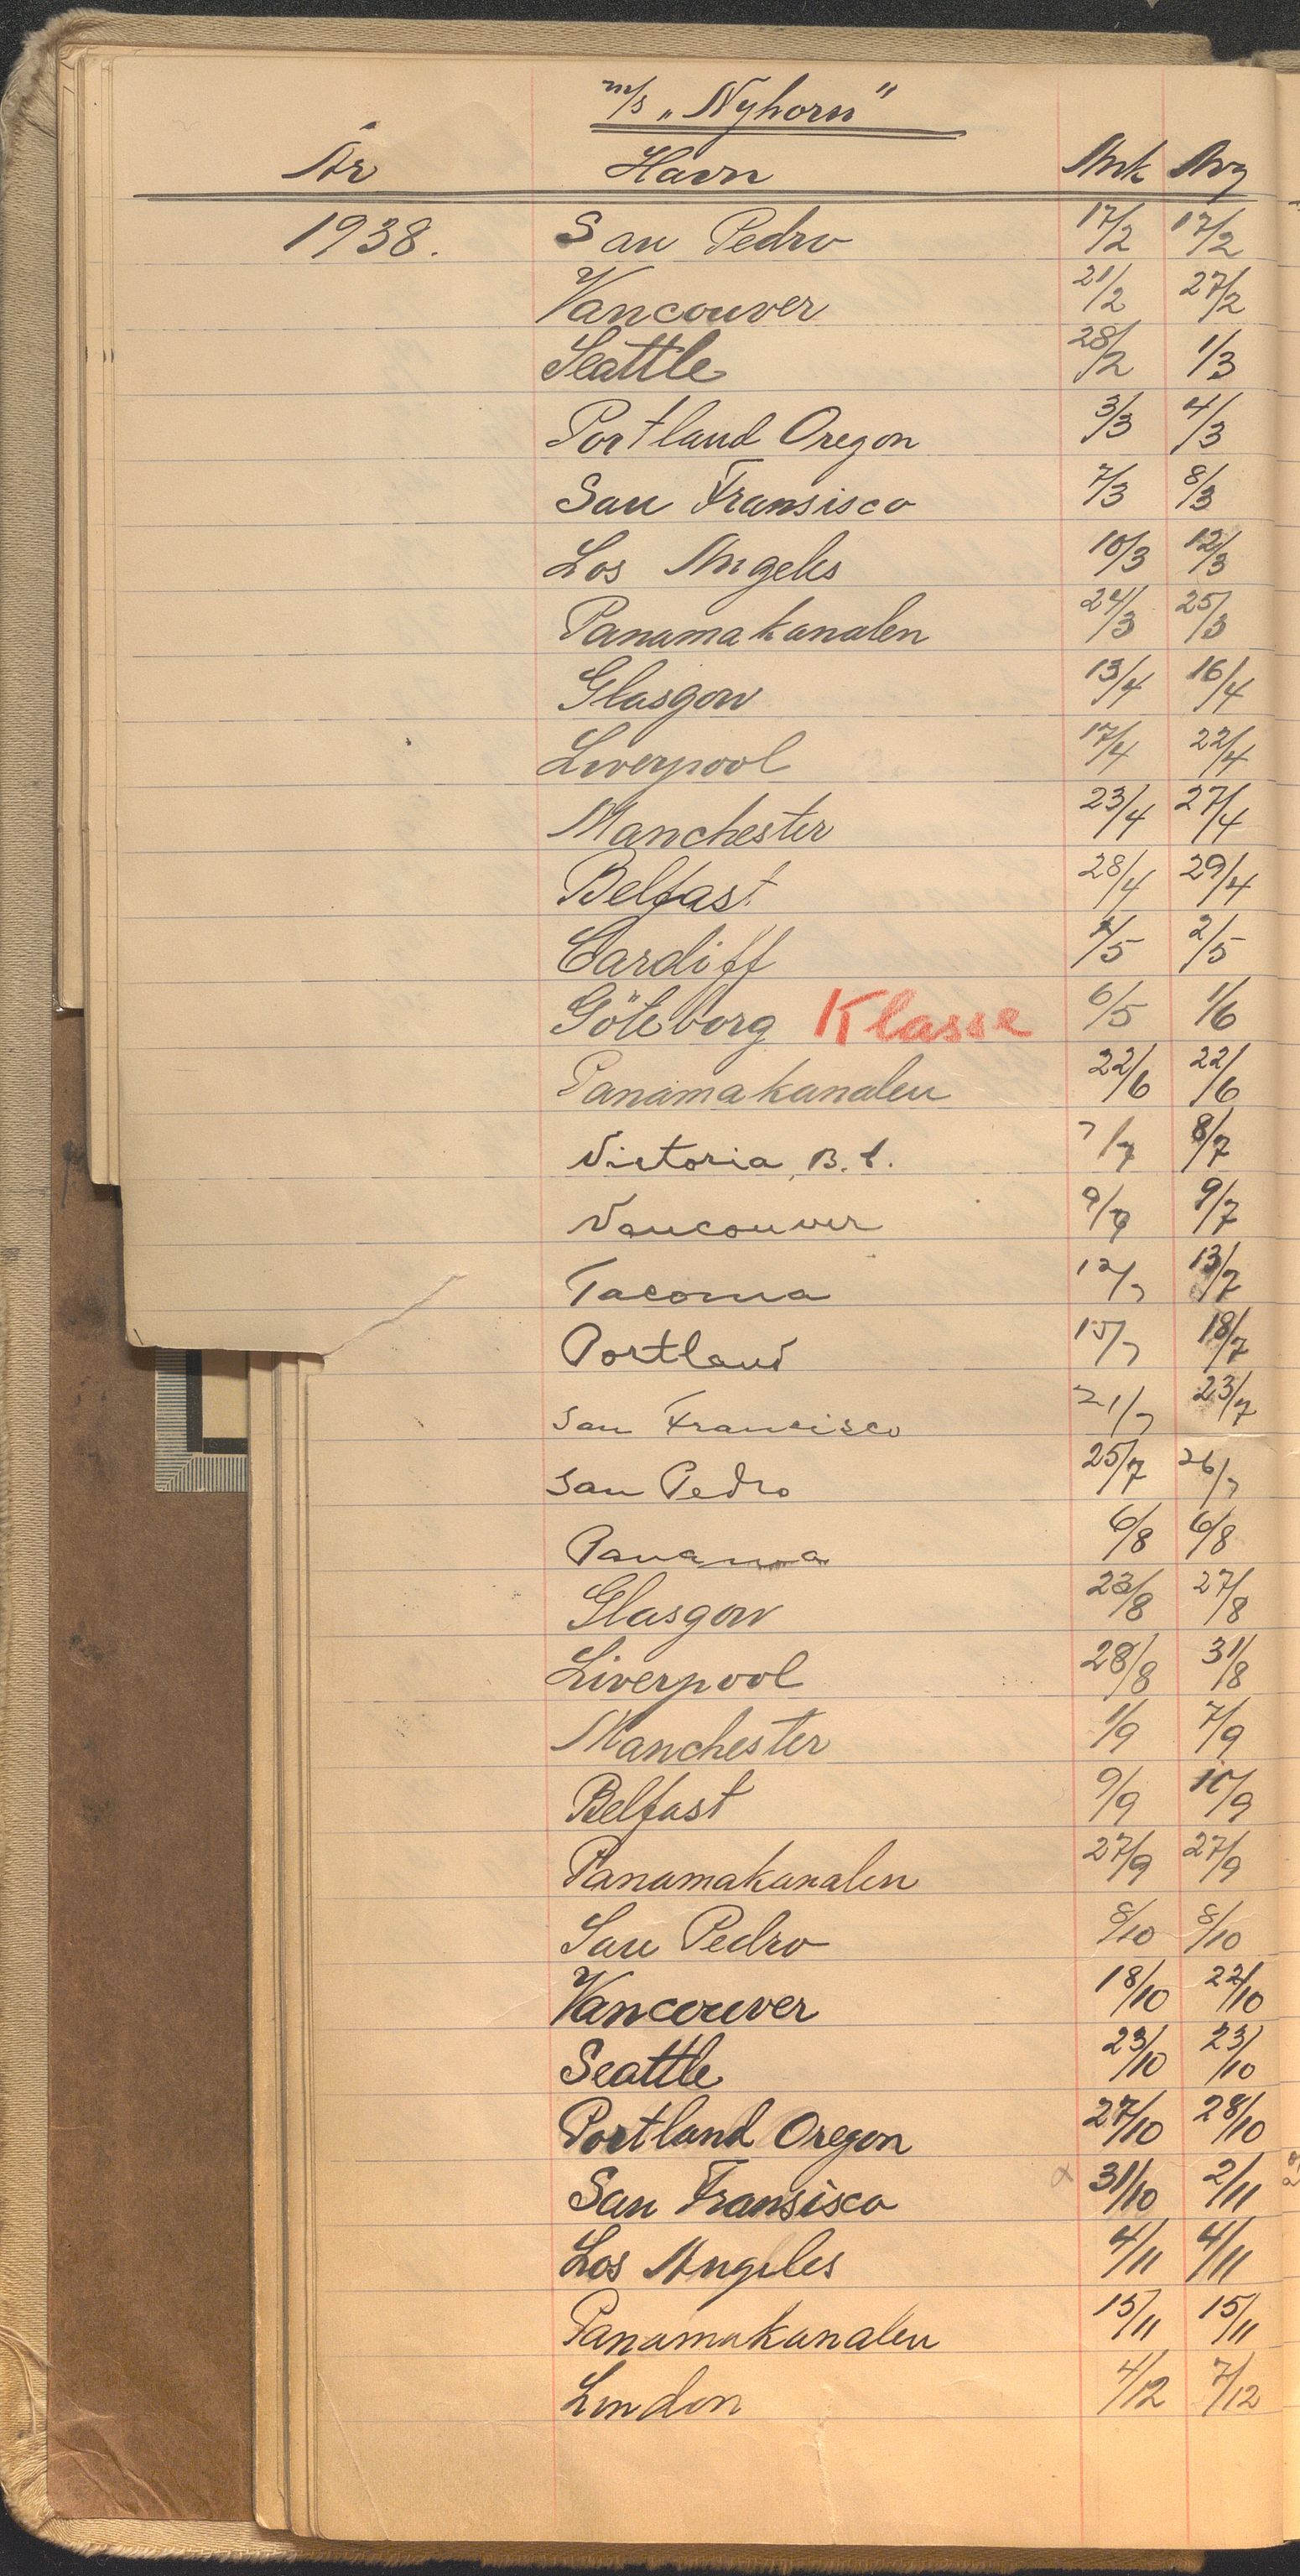 m/s „Nyhorn"
År Havn Ank Avg
1938. San Pedro 17/2 17/2
Vancouver 21/2 27/2
Seattle 28/2 1/3
Portland Oregon 3/3 4/3
San Fransisco 7/3 8/3
Los Angeles 10/3 12/3
Panamakanalen 24/3 25/3
Glasgow 13/4 16/4
Liverpool 17/4 22/4
Manchester 23/4 27/4
Belfast 28/4 29/4
Cardiff 1/5 2/5
Göteborg Klasse 6/5 1/6
Panamakanalen 22/6 22/6
Victoria, B.C. 7/7 8/7
Vancouver 9/7 9/7
Tacoma 12/7 13/7
Portland 15/7 18/7
San Francisco 21/7 23/7
San Pedro 25/7 26/7
Panama 6/8 6/8
Glasgow 23/8 27/8
Liverpool 28/8 31/8
Manchester 1/9 7/9
Belfast 9/9 10/9
Panamakanalen 27/9 27/9
San Pedro 8/10 8/10
Vancouver 18/10 22/10
Seattle 23/10 23/10
Portland Oregon 27/10 28/10
San Fransisco 31/10 2/11
Los Angeles 4/11 4/11
Panamakanalen 15/11 15/11
London 4/12 7/12